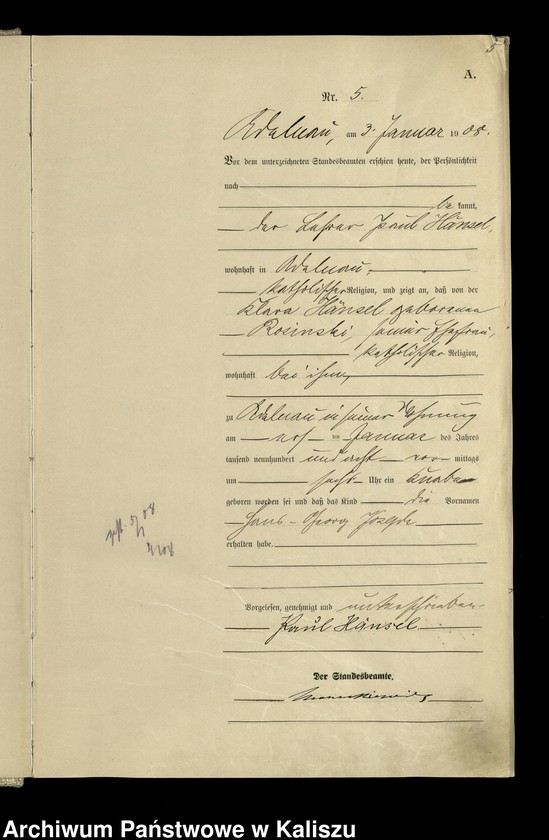 5
A.
Nr. 5.
Adelnau, am 3. Januar 1908.
Vor dem unterzeichneten Standesbeamten erschien heute, der Persönlichkeit
nach
be kannt,
der Lehrer Paul Hänsel,
wohnhaft in Adelnau,
katholischer Religion, und zeigt an, daß von der
Klara Hänsel geborenen
Rosinski, seiner Ehefrau,
katholischer Religion,
wohnhaft bei ihm,
zu Adelnau in seiner Wohnung
am ersten Januar des Jahres
tausend neunhundert und acht vor mittags
um sechs Uhr ein Knabe
geboren worden sei und daß das Kind die Vornamen
Hans-Georg Joseph
erhalten habe.
Vorgelesen, genehmigt und unterschrieben.
Paul Hänsel
Der Standesbeamte.
Archiwum Państwowe w Kaliszu